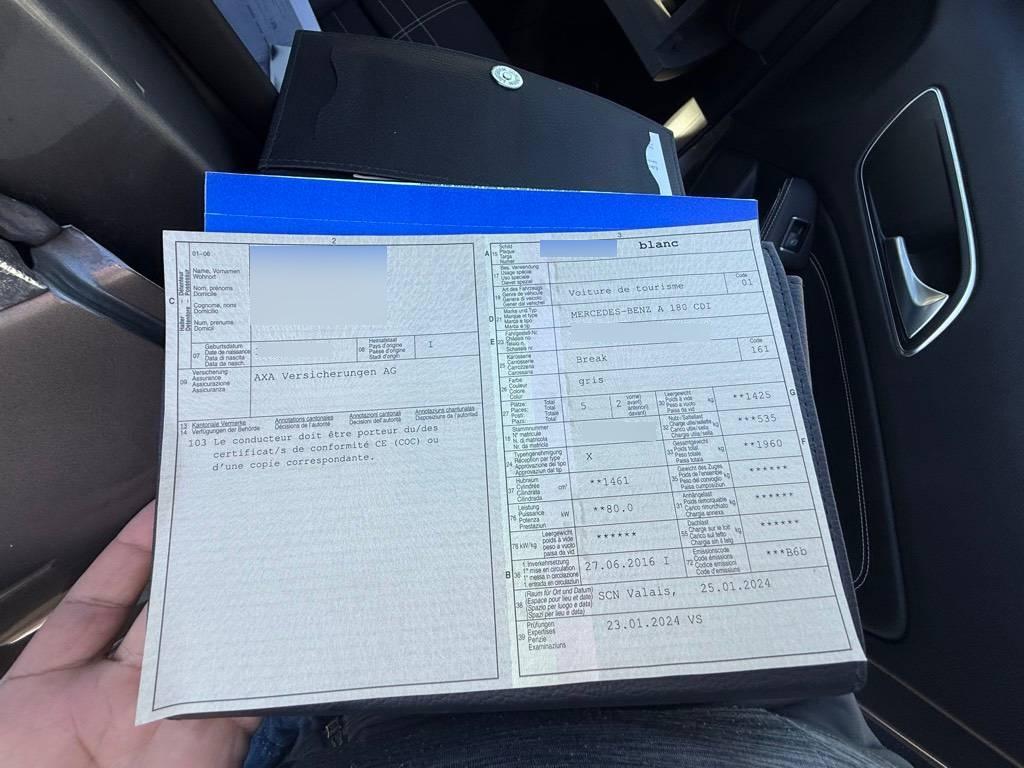 2
01-06
C
Halter Détenteur
Detentore Possessur
Name, Vornamen
Wohnort
Nom, prénoms
Domicile
Cognome, nomi
Domicilio
Num, prenums
Domicil
07
Geburtsdatum
Date de naissance
Data di nascita
Data da nasch.
08
Heimatstaat
Pays d'origine
Paese d'origine
Stadi d'origin
I
09
Versicherung
Assurance
Assicurazione
Assicuranza
AXA Versicherungen AG
13
14
Kantonale Vermerke
Verfügungen der Behörde
Annotations cantonales
Décisions de l'autorité
Annotazioni cantonali
Decisioni dell'autorità
Annotaziuns chantunalas
Disposiziuns da l'autoritad
103 Le conducteur doit être porteur du/des
certificat/s de conformité CE (COC) ou
d'une copie correspondante.
3
A
15
Schild
Plaque
Targa
Numer
blanc
17
Bes. Verwendung
Usage spécial
Uso speciale
Diever spezial
D
19
Art des Fahrzeugs
Genre de véhicule
Genere di veicolo
Gener dal vehichel
Voiture de tourisme
Code
01
21
Marke und Typ
Marque et type
Marca e tipo
Marca e tip
MERCEDES-BENZ A 180 CDI
E
23
Fahrgestell-Nr.
Châssis no
Telaio n.
Schassis nr.
25
Karosserie
Carrosserie
Carrozzeria
Carossaria
Break
Code
161
26
Farbe
Couleur
Colore
Color
gris
27
Plätze: Total
Places: Total
Posti: Totale
Plazs: Total
5
2
vorne)
avant)
anteriori)
davant)
30
Leergewicht
Poids à vide
Peso a vuoto
Paisa da vid
kg
**1425
G
18
Stammnummer
N° matricule
N. di matricola
Nr. da matricla
32
Nutz-/Sattellast
Charge utile/sellette
Carico utile/sella
Chargia utila/sella
kg
***535
24
Typengenehmigung
Réception par type
Approvazione del tipo
Approvaziun dal tip
X
33
Gesamtgewicht
Poids total
Peso totale
Paisa totala
kg
**1960
F
37
Hubraum
Cylindrée
Cilindrata
Cilindrada
cm³
**1461
35
Gewicht des Zuges
Poids de l'ensemble
Peso del convoglio
Paisa cumposiziun
kg
******
76
Leistung
Puissance
Potenza
Prestaziun
kW
**80.0
31
Anhängelast
Poids remorquable
Carico rimorchiato
Chargia annexa
kg
******
78 kW/kg
Leergewicht
poids à vide
peso a vuoto
paisa da vid
******
55
Dachlast
Charge sur le toit
Carico sul tetto
Chargia sin il tetg
kg
******
B
36
1. Inverkehrsetzung
1re mise en circulation
1a messa in circolazione
1. entrada en circulaziun
27.06.2016 I
72
Emissionscode
Code émissions
Codice emissioni
Code d'emissiuns
***B6b
38
(Raum für Ort und Datum)
(Espace pour lieu et date)
(Spazio per luogo e data)
(Spazi per lieu e data)
SCN Valais, 25.01.2024
39
Prüfungen
Expertises
Perizie
Examinaziuns
23.01.2024 VS